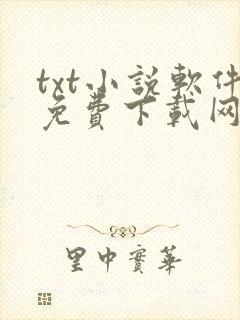 txt小説軟件
免費下載网
里中實華